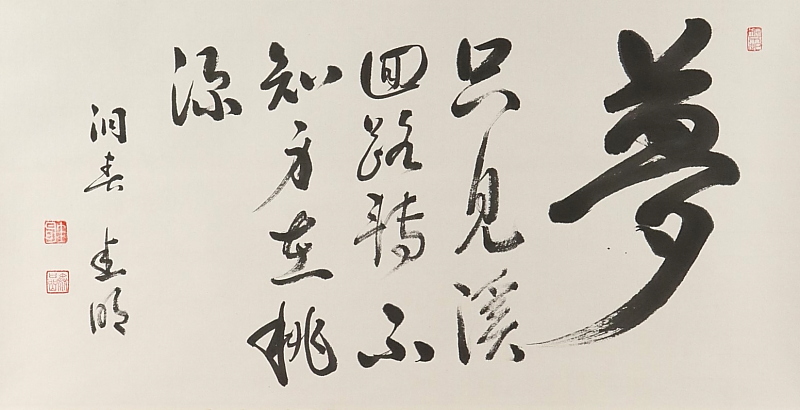 夢
只見溪
回路轉不
知身在桃
源
洞春 圭明